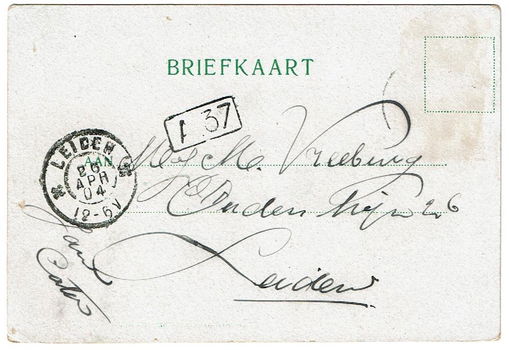 BRIEFKAART
A 37
LEIDEN
26
APR
04
12-6V
AAN
M. Vreeburg
Ouden Rijn 26
Leiden